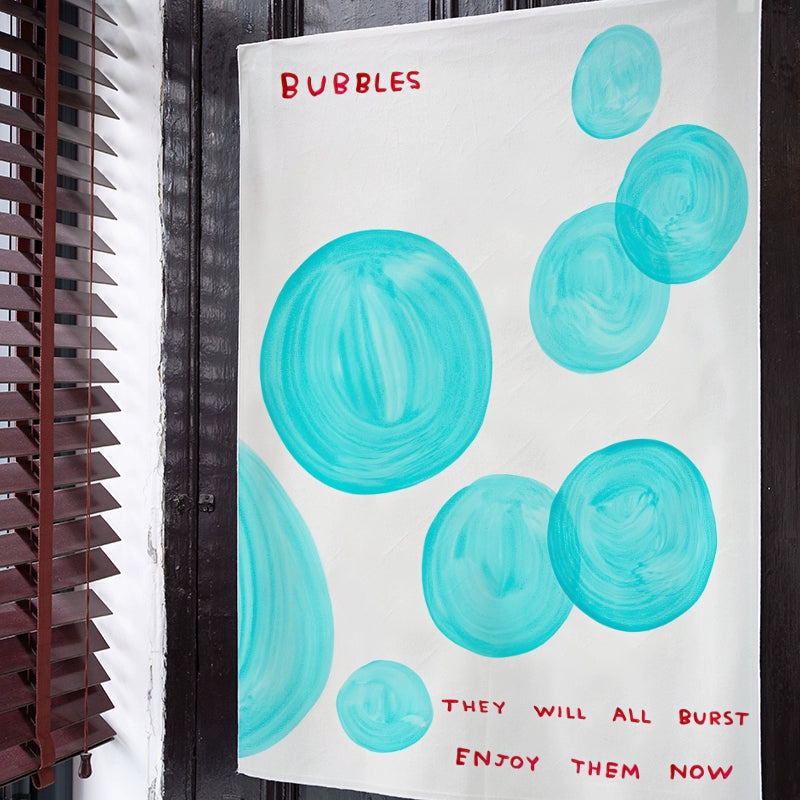 BUBBLES
THEY WILL ALL BURST
ENJOY THEM NOW